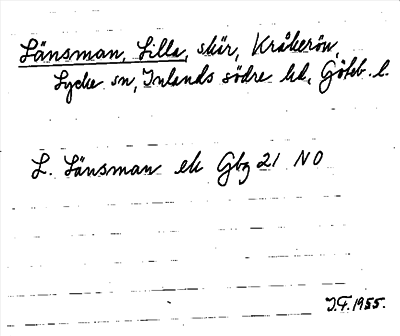 Länsman, Lilla, skär, Kråkerön,
Lycke sn, Inlands södre hd, Göteb. l.
L. Länsman ek Gbg 21 NO
I.F. 1955.